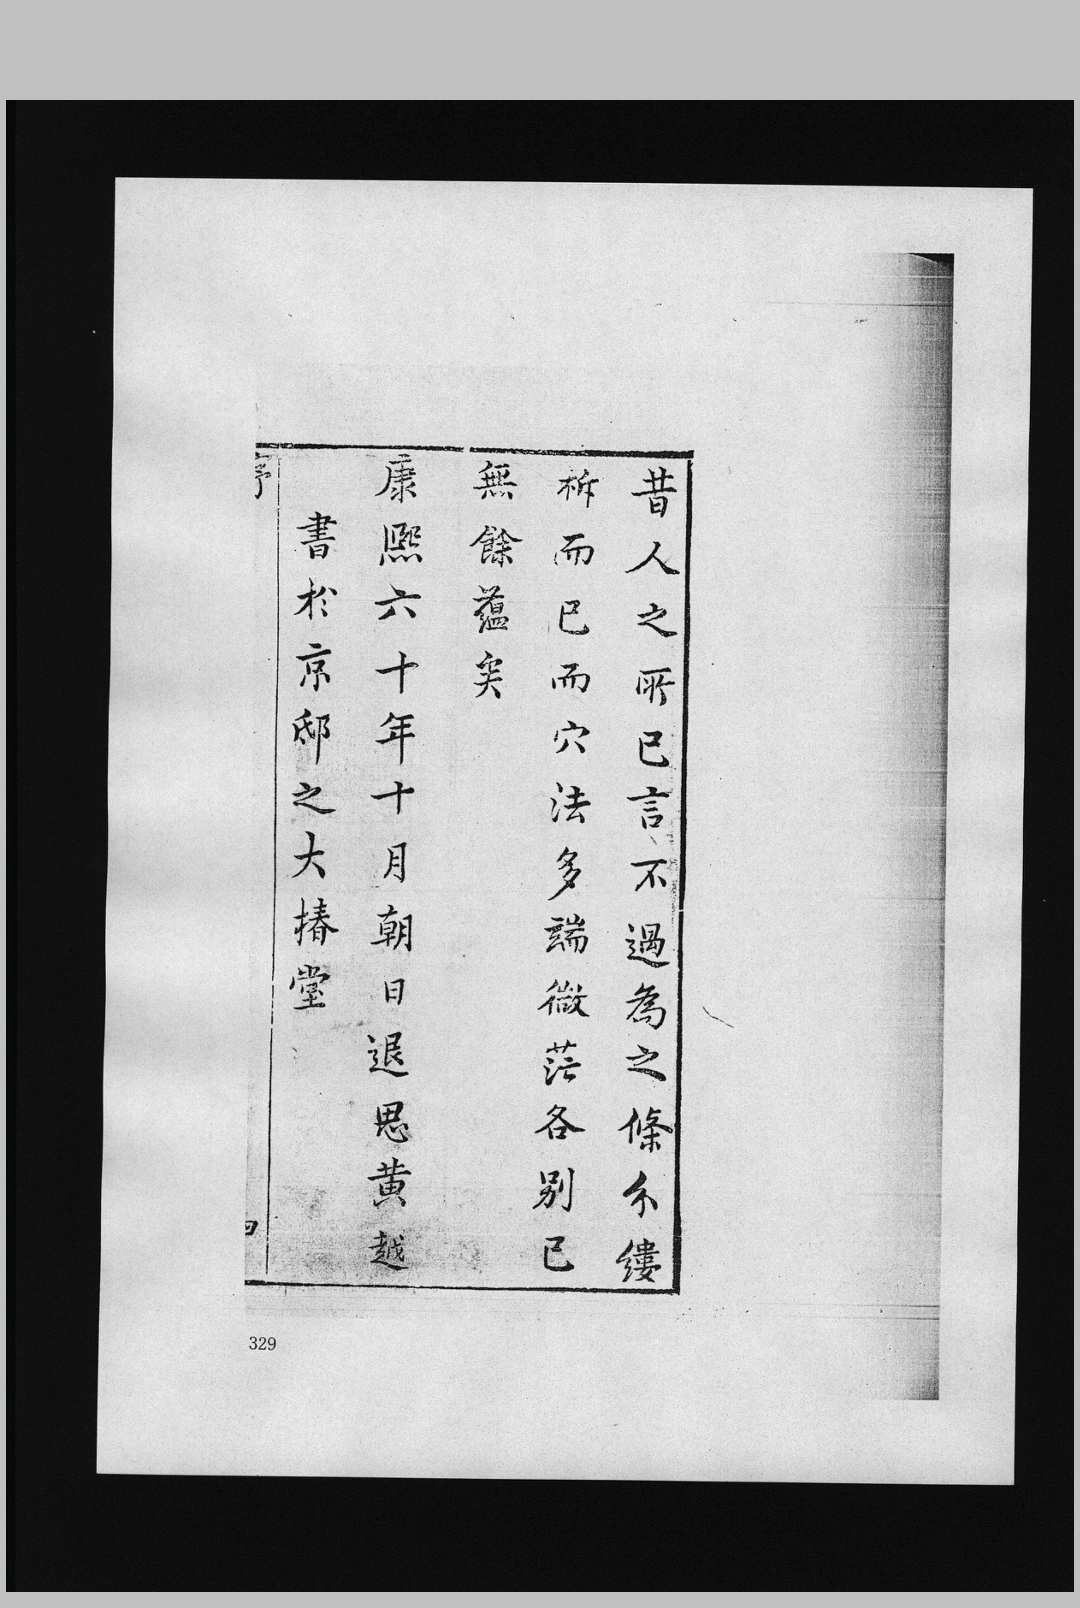 昔人之所已言不過為之條分縷
析而已而穴法多端微茫各别已
無餘蘊矣
康熙六十年十月朝日退思黄越
書於京邸之大椿堂
序
四
329